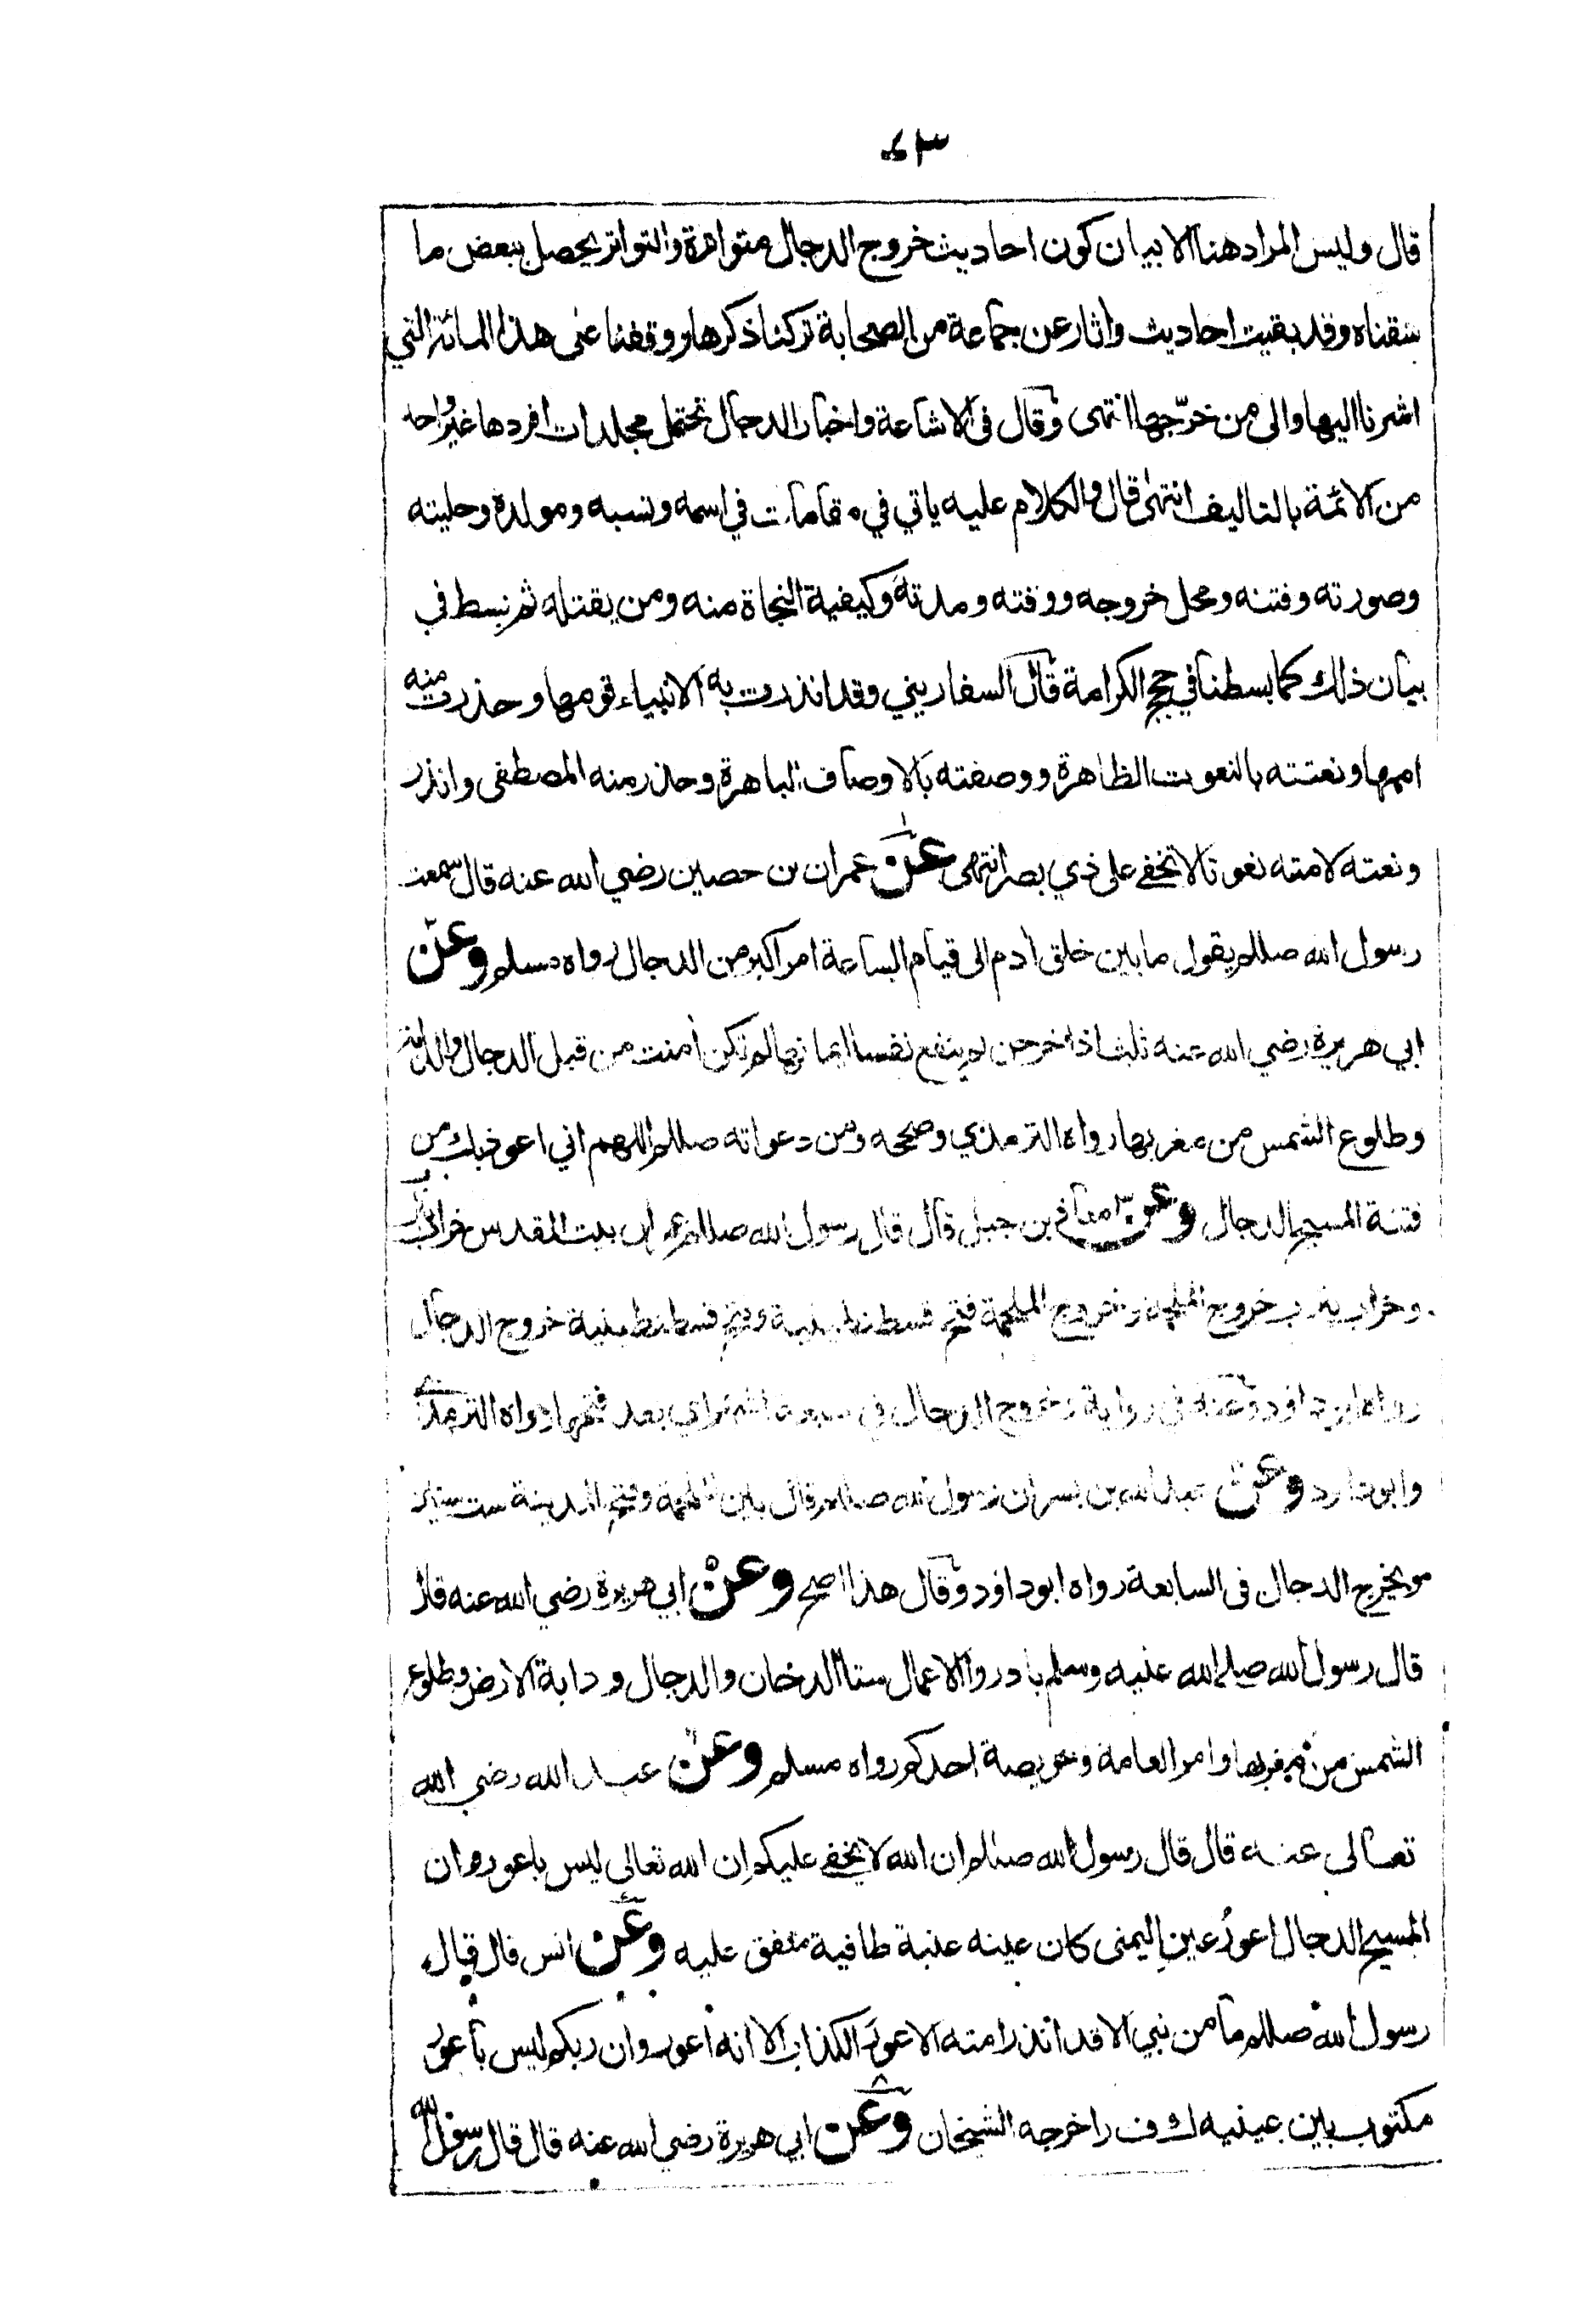 ٤٣
قال وليس المراد هنا الا بيان كون احاديث خروج الدجال متواترة والتواتر يحصل ببعض ما
سقناه وقد بقيت احاديث واثار عن جماعة من الصحابة تركنا ذكرها ووقفنا على هذا المائة التي
اشرنا اليها والى من خرّجها انتهى وقال في الاشاعة واخبار الدجال تحتمل مجلدات افردها غير واحد
من الائمة بالتاليف انتهى قال والكلام عليه ياتي في مقامات في اسمه ونسبه ومولده وحليته
وصورته وفتنه ومحل خروجه ووقته ومدته وكيفية النجاة منه ومن يقتله ثم نبسط في
بيان ذلك كما بسطنا في حجج الكرامة قال السفاريني وقد انذرت به الانبياء قومها وحذرت منه
اممها ونعتته بالنعوت الظاهرة ووصفته بالاوصاف الباهرة وحذر منه المصطفى وانذر
ونعته لامته نعوتا لا تخفى على ذي بصر انتهى عن عمران بن حصين رضي الله عنه قال سمعت
رسول الله صللم يقول ما بين خلق آدم الى قيام الساعة امر اكبر من الدجال رواه مسلم وعن
ابي هريرة رضي الله عنه ثلث اذا خرجن لم ينفع نفسا ايمانها لم تكن آمنت من قبل الدجال والدابة
وطلوع الشمس من مغربها رواه الترمذي وصححه ومن دعواته صللم اللهم اني اعوذ بك من
فتنة المسيح الدجال وعن معاذ بن جبل قال قال رسول الله صللم عمران بيت المقدس خراب يثرب
وخراب يثرب خروج الملحمة وخروج الملحمة فتح قسطنطينية وفتح قسطنطينية خروج الدجال
رواه ابو داود وعنه في رواية وخروج الدجال في سبعة اشهر اي بعد فتحها رواه الترمذي
وابو داود وعن عبد الله بن بسر ان رسول الله صللم قال بين الملحمة وفتح المدينة ست سنين
ويخرج الدجال في السابعة رواه ابو داود وقال هذا اصح وعن ابي هريرة رضي الله عنه قال
قال رسول الله صلى الله عليه وسلم بادروا الاعمال ستا الدخان والدجال ودابة الارض وطلوع
الشمس من مغربها وامر العامة وخويصة احدكم رواه مسلم وعن عبد الله رضي الله
تعالى عنه قال قال رسول الله صللم ان الله لا يخفى عليكم ان الله تعالى ليس باعور وان
المسيح الدجال اعورُ عينِ اليمنى كان عينه عنبة طافية متفق عليه وعن انس قال قال
رسول الله صللم ما من نبي الا قد انذر امته الاعور الكذاب الا انه اعور وان ربكم ليس باعور
مكتوب بين عينيه ك ف ر اخرجه الشيخان وعن ابي هريرة رضي الله عنه قال قال رسول الله